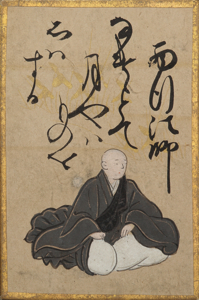 西行法師
なけとて
月やハ
ものを
おもハ
する